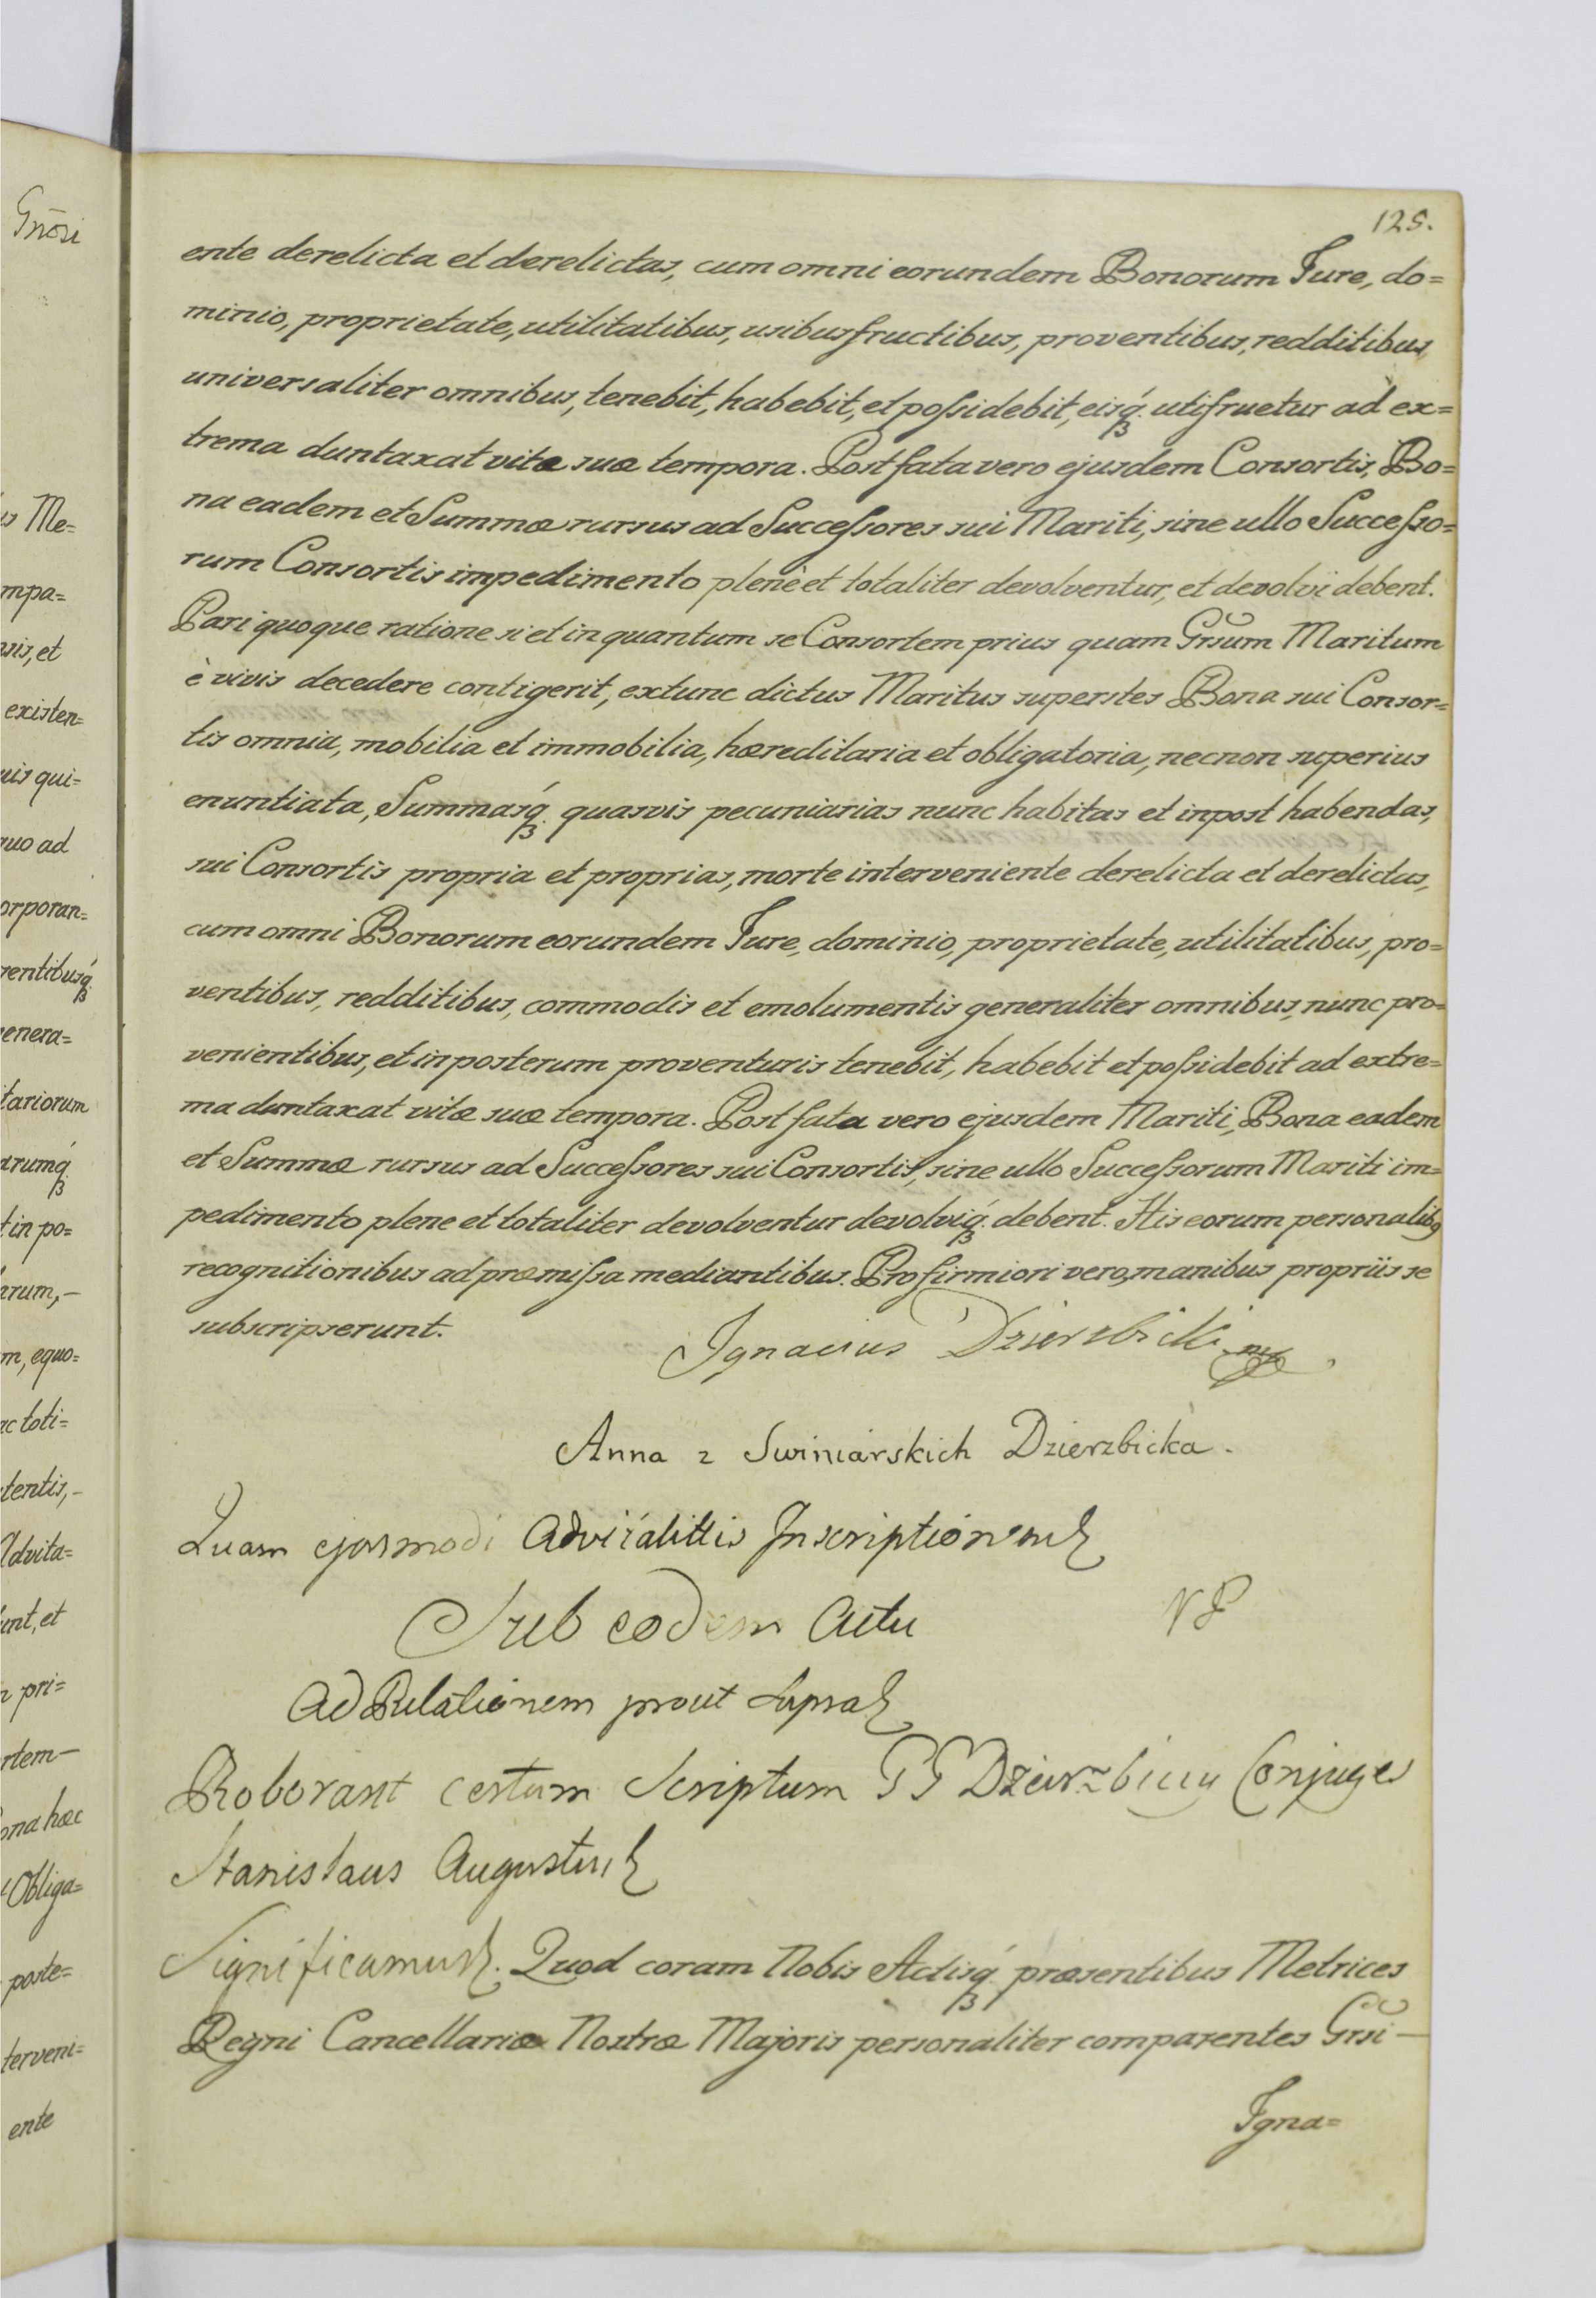 125.
ente derelicta et derelictas, cum omni eorundem Bonorum Jure, do=
minio, proprietate, utilitatibus, usibusfructibus, proventibus, redditibus,
universaliter omnibus, tenebit, habebit, et possidebit, eisq́ꝫ utifruetur ad ex=
trema duntaxat vitæ suæ tempora. Post fata vero ejusdem Consortis, Bo=
na eadem et Summæ rursus ad Successores sui Mariti, sine ullo Successo=
rum Consortis impedimento plenè et totaliter devolventur, et devolvi debent.
Pari quoque ratione si et in quantum se Consortem prius quam Grsum Maritum
è vivis decedere contigerit, extunc dictus Maritus superstes Bona sui Consor=
tis omnia, mobilia et immobilia, hæreditaria et obligatoria, necnon superius
enuntiata, Summasq́ꝫ quasvis pecuniarias nunc habitas et inpost habendas,
sui Consortis propria et proprias, morte interveniente derelicta et derelictas,
cum omni Bonorum eorundem Jure, dominio, proprietate, utilitatibus, pro=
ventibus, redditibus, commodis et emolumentis generaliter omnibus, nunc pro=
venientibus, et in posterum proventuris tenebit, habebit et possidebit ad extre=
ma duntaxat vitæ suæ tempora. Post fata vero ejusdem Mariti, Bona eadem
et Summæ rursus ad Successores sui Consortis, sine ullo Successorum Mariti im=
pedimento plene et totaliter devolventur devolviq́ꝫ debent. His eorum personalibꝰ
recognitionibus ad præmissa mediantibus. Pro firmiori vero, manibus propriis se
subscripserunt.
Ignacius Dzierzbicki mp
Anna z Swiniarskich Dzierzbicka.
Quam ejusmodi Advitalittis Inscriptionem
Sub eodem Actu
Ad Relationem prout supra
Roborant certum Scriptum GG Dzierzbiccy Conjuges
Stanislaus Augustus
Significamus. Quod coram Nobis Actisq́ꝫ præsentibus Metrices
Regni Cancellariæ Nostræ Majoris personaliter comparentes Grsi —
Igna=